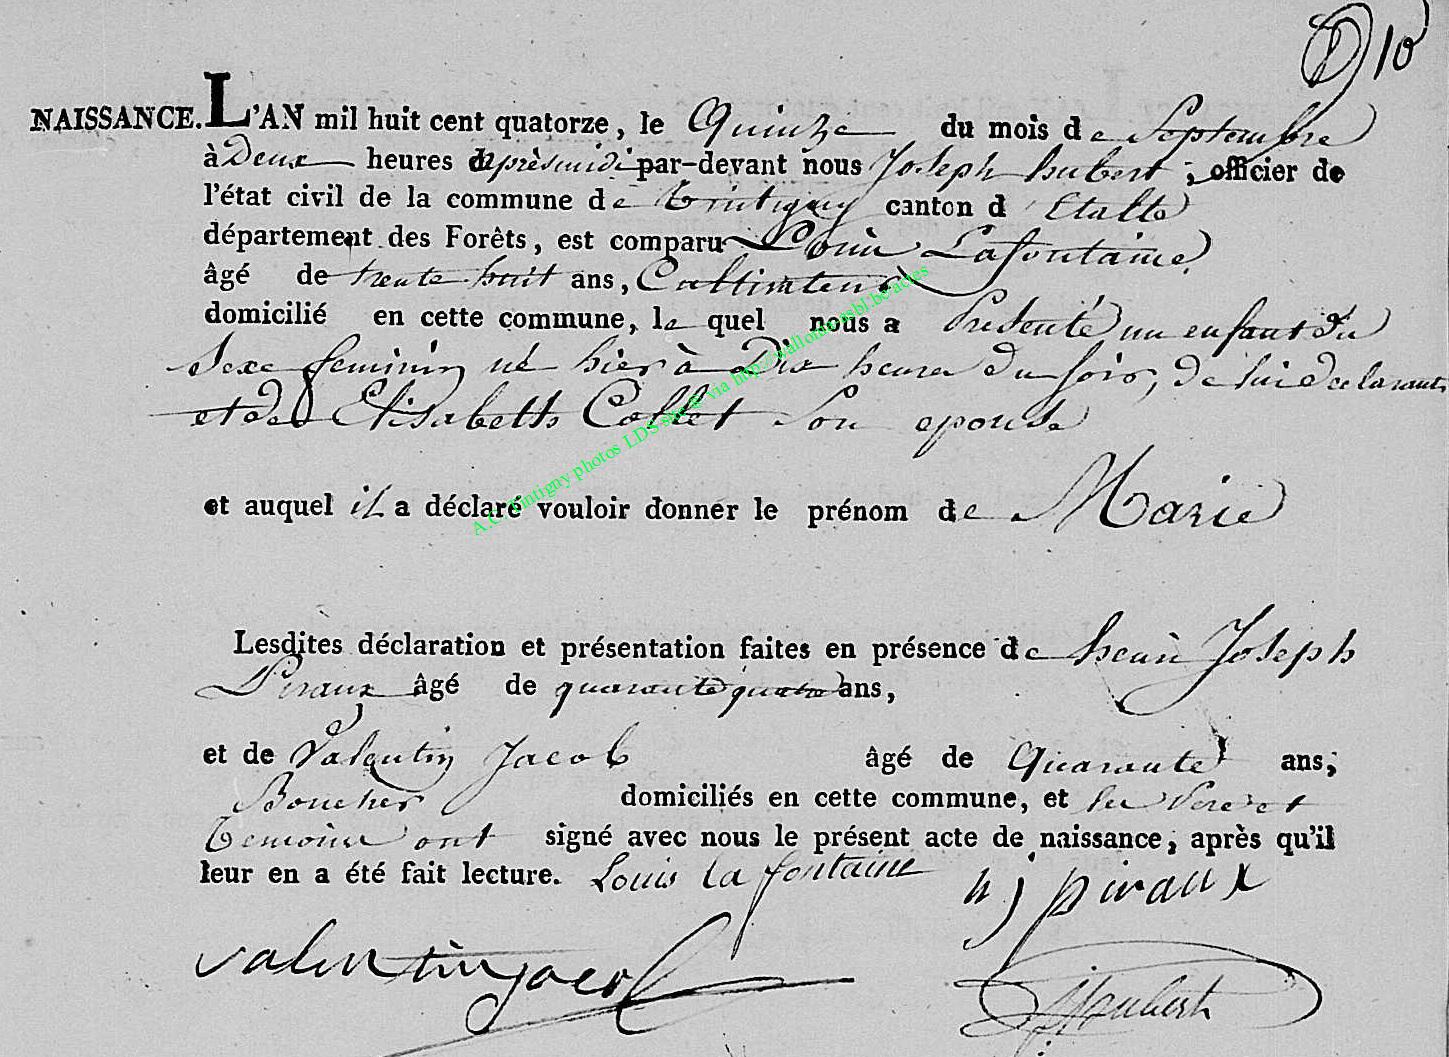 10
NAISSANCE. L'AN mil huit cent quatorze, le Quinze du mois de Septembre
à Deux heures après midi par-devant nous Joseph hubert ; officier de
l'état civil de la commune de tintigny canton d'Etalle
département des Forêts, est comparu Louis Lafontaine
âgé de trente huit ans, Cultivateur
domicilié en cette commune, le quel nous a Presenté un enfant du
Sexe feminin né hier à Dix heures Du soir, De lui declarant
et de Elisabeth Collet Son epouse
et auquel il a déclaré vouloir donner le prénom de Marie
Lesdites déclaration et présentation faites en présence de henri Joseph
Piraux âgé de quarante quatre ans,
et de Valentin Jacob âgé de Quarante ans,
Boucher domiciliés en cette commune, et les Pere et
temoins ont signé avec nous le présent acte de naissance, après qu'il
leur en a été fait lecture. Louis la fontaine hj piraux
valentin jacob
Hubert
A.C. Tintigny photos LDS site @ via http://wallonia.asbl.be/actes